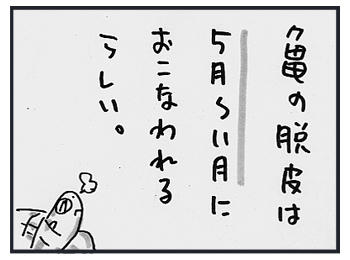 亀の脱皮は
5月〜11月に
おこなわれる
らしい。